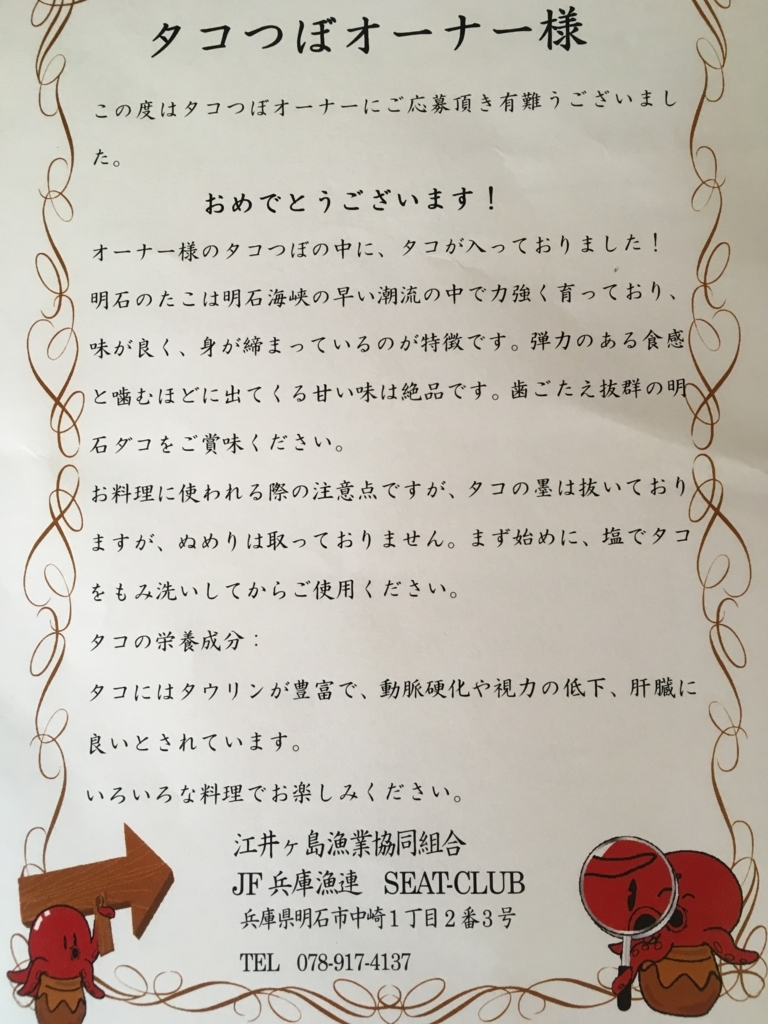 タコつぼオーナー様
この度はタコつぼオーナーにご応募頂き有難うございまし
た。
おめでとうございます！
オーナー様のタコつぼの中に、タコが入っておりました！
明石のたこは明石海峡の早い潮流の中で力強く育っており、
味が良く、身が締まっているのが特徴です。弾力のある食感
と噛むほどに出てくる甘い味は絶品です。歯ごたえ抜群の明
石ダコをご賞味ください。
お料理に使われる際の注意点ですが、タコの墨は抜いており
ますが、ぬめりは取っておりません。まず始めに、塩でタコ
をもみ洗いしてからご使用ください。
タコの栄養成分：
タコにはタウリンが豊富で、動脈硬化や視力の低下、肝臓に
良いとされています。
いろいろな料理でお楽しみください。
江井ヶ島漁業協同組合
JF兵庫漁連　SEAT-CLUB
兵庫県明石市中崎１丁目２番３号
TEL　078-917-4137